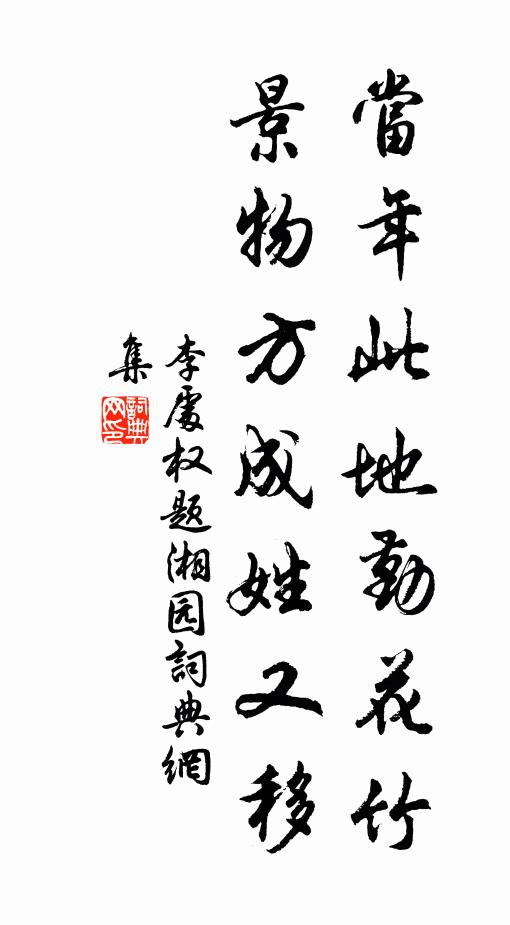 當年此地勤花竹
景物方成姓又移
李處权题湘园詞典網
集
詞典网印